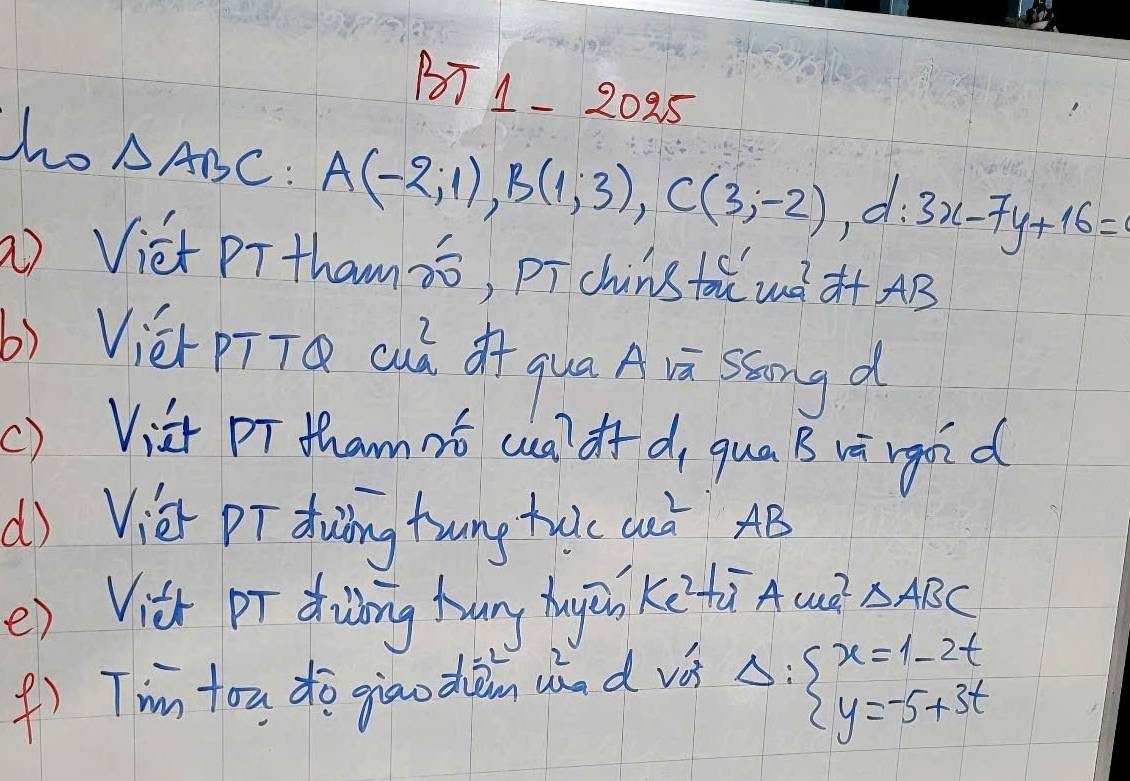 BT 1 - 2025
ho ΔABC: A(-2;1), B(1;3), C(3;-2), d: 3x-7y+16=
a) Viết PT tham số, PT chính tắc của đt AB
b) Viết PTTQ của đt qua A và SSong d
c) Viết PT tham số của đt d₁ qua B và vgóc d
d) Viết PT đường trung trực của AB
e) Viết PT đường trung tuyến kẻ từ A của ΔABC
f) Tìm toạ độ giao điểm của d với Δ: { x = 1-2t
y = -5+3t